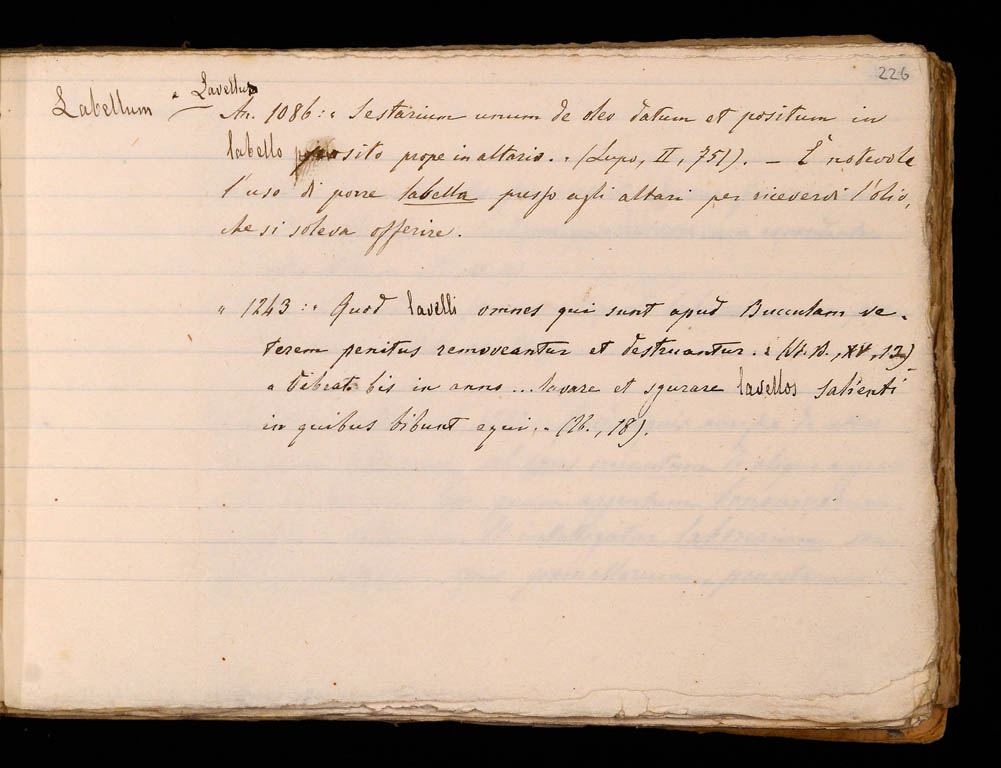 226
Labellum " Lavellus
An. 1086: " Sestarium unum de oleo datum et positum in
labello posito prope in altario. " (Lupo, II, 751). — È notevole
l'uso di porre labella presso agli altari per ricevervi l'olio,
che si soleva offerire.
" 1243: " Quod lavelli omnes qui sunt apud Bucculam ve-
terem penitus removeantur et destruantur. " (St. B., XV, 12)
" debeat bis in anno ... lavare et sgurare lavellos salienti
in quibus bibunt equi. " (Ib., 18).